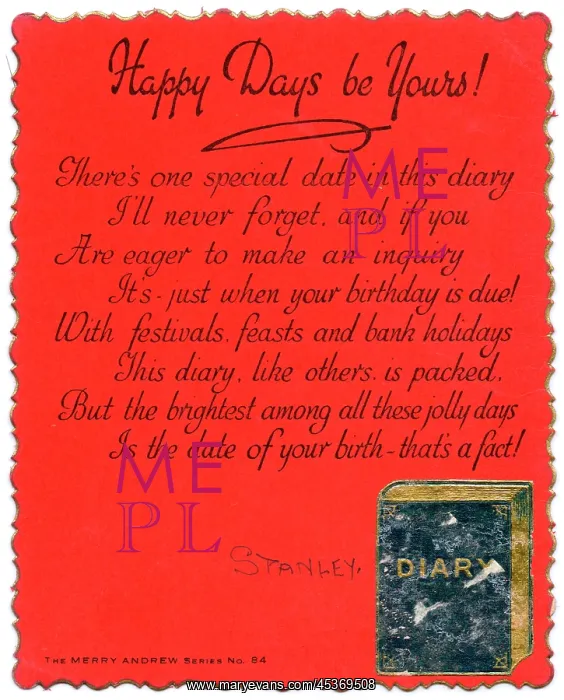 Happy Days be Yours!
There's one special date in this diary
I'll never forget, and if you
Are eager to make an inquiry
It's - just when your birthday is due!
With festivals, feasts and bank holidays
This diary, like others, is packed,
But the brightest among all these jolly days
Is the date of your birth - that's a fact!
ME
PL
ME
PL
STANLEY.
DIARY
THE MERRY ANDREW SERIES No. 84
www.maryevans.com/45369508